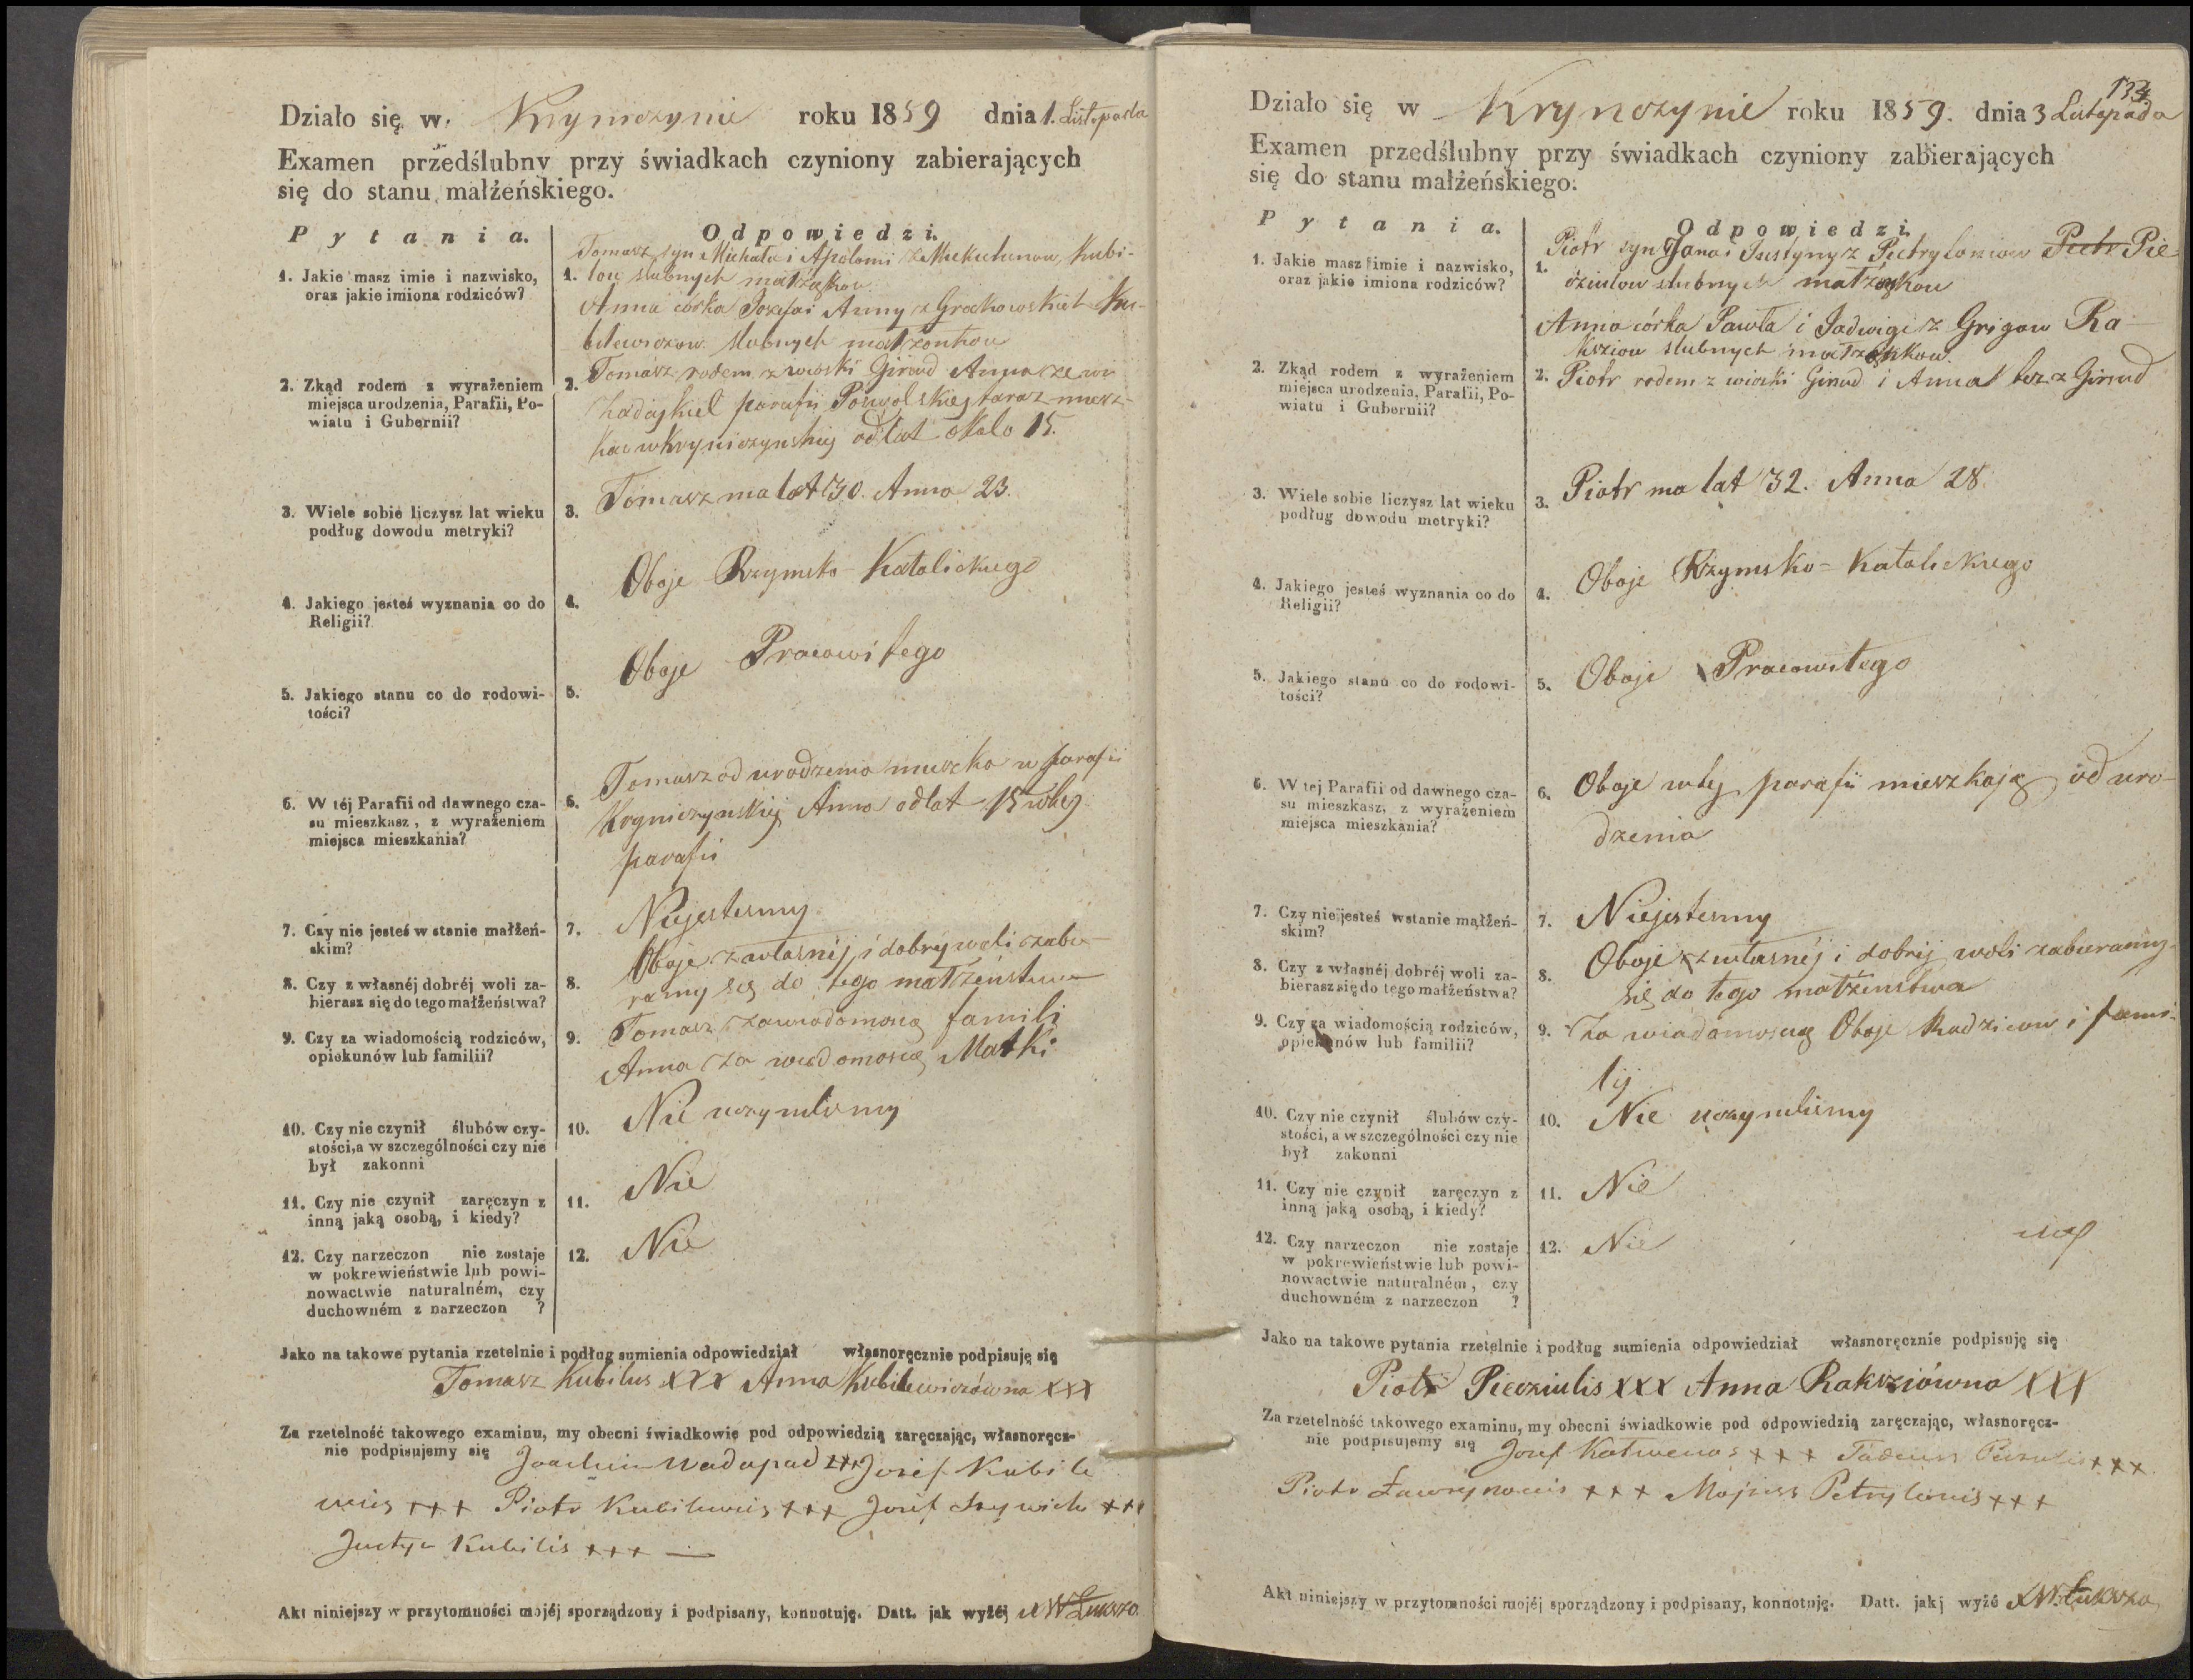 Działo się w. Kryniczynie roku 1859 dnia 1. Listopada
Examen przedślubny przy świadkach czyniony zabierających
się do stanu małżeńskiego.
Pytania. Odpowiedzi.
1. Jakie masz imie i nazwisko,
oraz jakie imiona rodziców?
1. Tomasz syn Michała i Apolonii z Mickielunow Kubi-
low slubnych małżąkow
Anna córka Jozefa i Anny z Grochowskich Ku-
bilewiczow slubnych małżonkow
2. Zkąd rodem z wyrażeniem
miejsca urodzenia, Parafii, Po-
wiatu i Gubernii?
2. Tomasz rodem z wioski Girnud Anna ze wsi
parafii teraz miesz-
ka w Kryniczynskiej od lat okolo 15.
3. Wiele sobie liczysz lat wieku
podług dowodu metryki?
3. Tomasz ma lat 30. Anna 23.
4. Jakiego jesteś wyznania co do
Religii?
4. Oboje Rzymsko-Katolickiego
5. Jakiego stanu co do rodowi-
tości?
5. Oboje Pracowitego
6. W téj Parafii od dawnego cza-
su mieszkasz, z wyrażeniem
miejsca mieszkania?
6. Tomasz od urodzenia mieszka w parafii
Kryniczynskiej Anna od lat 15 w tej
parafii
7. Czy nie jesteś w stanie małżeń-
skim?
7. Niejestesmy
8. Czy z własnéj dobréj woli za-
bierasz się do tego małżeństwa?
8. Oboje z własnéj i dobrej woli zabie-
ramy się do tego małżeństwa
9. Czy za wiadomością rodziców,
opiekunów lub familii?
9. Tomasz za wiadomoscią famili
Anna za wiadomoscią Matki
10. Czy nie czynił ślubów czy-
stości, a w szczególności czy nie
był zakonni
10. Nie uczynilismy
11. Czy nie czynił zaręczyn z
inną jaką osobą, i kiedy?
11. Nie
12. Czy narzeczon nie zostaje
w pokrewieństwie lub powi-
nowactwie naturalném, czy
duchowném z narzeczon ?
12. Nie
Jako na takowe pytania rzetelnie i podług sumienia odpowiedział własnoręcznie podpisuję się
Tomasz Kubilus XXX Anna Kubilewiczówna XXX
Za rzetelność takowego examinu, my obecni świadkowie pod odpowiedzią zaręczając, własnoręcz-
nie podpisujemy się Joachim +++ Josef Kubile
wicis +++ Piotr Kubilewicis +++ Josef +++
Justyn Kubilis +++ —
Akt niniejszy w przytomności mojéj sporządzony i podpisany, konnotuję. Datt. jak wyżéj X W Łuksza
134
Działo się w Krynczynie roku 1859. dnia 3 Listopada
Examen przedślubny przy świadkach czyniony zabierających
się do stanu małżeńskiego.
Pytania. Odpowiedzi.
1. Jakie masz imie i nazwisko,
oraz jakie imiona rodziców?
1. Piotr syn Jana i Justyny z Pietrylaniow Piotr Pie-
dziulow slubnych małżąkow
Anna córka Pawła i Jadwigi z Grigow Ra-
kziow slubnych małżąkow.
2. Zkąd rodem z wyrażeniem
miejsca urodzenia, Parafii, Po-
wiatu i Gubernii?
2. Piotr rodem z wioski Girnud i Anna tez z Girnud
3. Wiele sobie liczysz lat wieku
podług dowodu metryki?
3. Piotr ma lat 32. Anna 28
4. Jakiego jesteś wyznania co do
Religii?
4. Oboje Rzymsko-Katolickiego
5. Jakiego stanu co do rodowi-
tości?
5. Oboje Pracowitego
6. W tej Parafii od dawnego cza-
su mieszkasz, z wyrażeniem
miejsca mieszkania?
6. Oboje w tej parafii mieszkają od uro-
dzenia
7. Czy nie jesteś wstanie małżeń-
skim?
7. Niejestesmy
8. Czy z własnéj dobréj woli za-
bierasz się do tego małżeństwa?
8. Oboje z własnéj i dobrej woli zabieramy
się do tego małżenstwa
9. Czy za wiadomością rodziców,
opiekunów lub familii?
9. Za wiadomoscią Oboje Rodzicow i fami-
lij
10. Czy nie czynił ślubów czy-
stości, a w szczególności czy nie
był zakonni
10. Nie uczynilismy
11. Czy nie czynił zaręczyn z
inną jaką osobą, i kiedy?
11. Nie
12. Czy narzeczon nie zostaje
w pokrewieństwie lub powi-
nowactwie naturalném, czy
duchowném z narzeczon ?
12. Nie
Jako na takowe pytania rzetelnie i podług sumienia odpowiedział własnoręcznie podpisuję się
Piotr Piedziulis XXX Anna Rakziówna XXX
Za rzetelność takowego examinu, my obecni świadkowie pod odpowiedzią zaręczając, własnoręcz-
nie podpisujemy się Josef +++ Tadeusz +++
Piotr Ławrynowis +++ Mojżesz Petrylanis +++
Akt niniejszy w przytomności mojéj sporządzony i podpisany, konnotuję. Datt. jakj wyżé X W. Łuksza